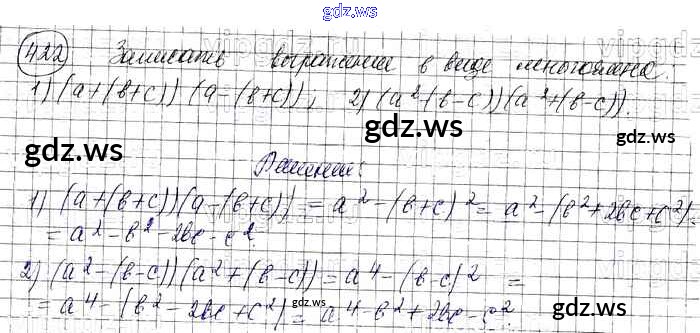 gdz.ws
gdz.ws
422 Записать выражение в виде многочлена.
1) (a+(b+c)) (a-(b+c)); 2) (a²-(b-c))(a²+(b-c)).
gdz.ws
gdz.ws
Решение:
1) (a+(b+c))(a-(b+c)) = a² - (b+c)² = a² - (b²+2bc+c²) =
= a² - b² - 2bc - c².
2) (a² - (b-c))(a² + (b-c)) = a⁴ - (b-c)² =
= a⁴ - (b² - 2bc + c²) = a⁴ - b² + 2bc - c²
gdz.ws
gdz.ws
gdz.ws